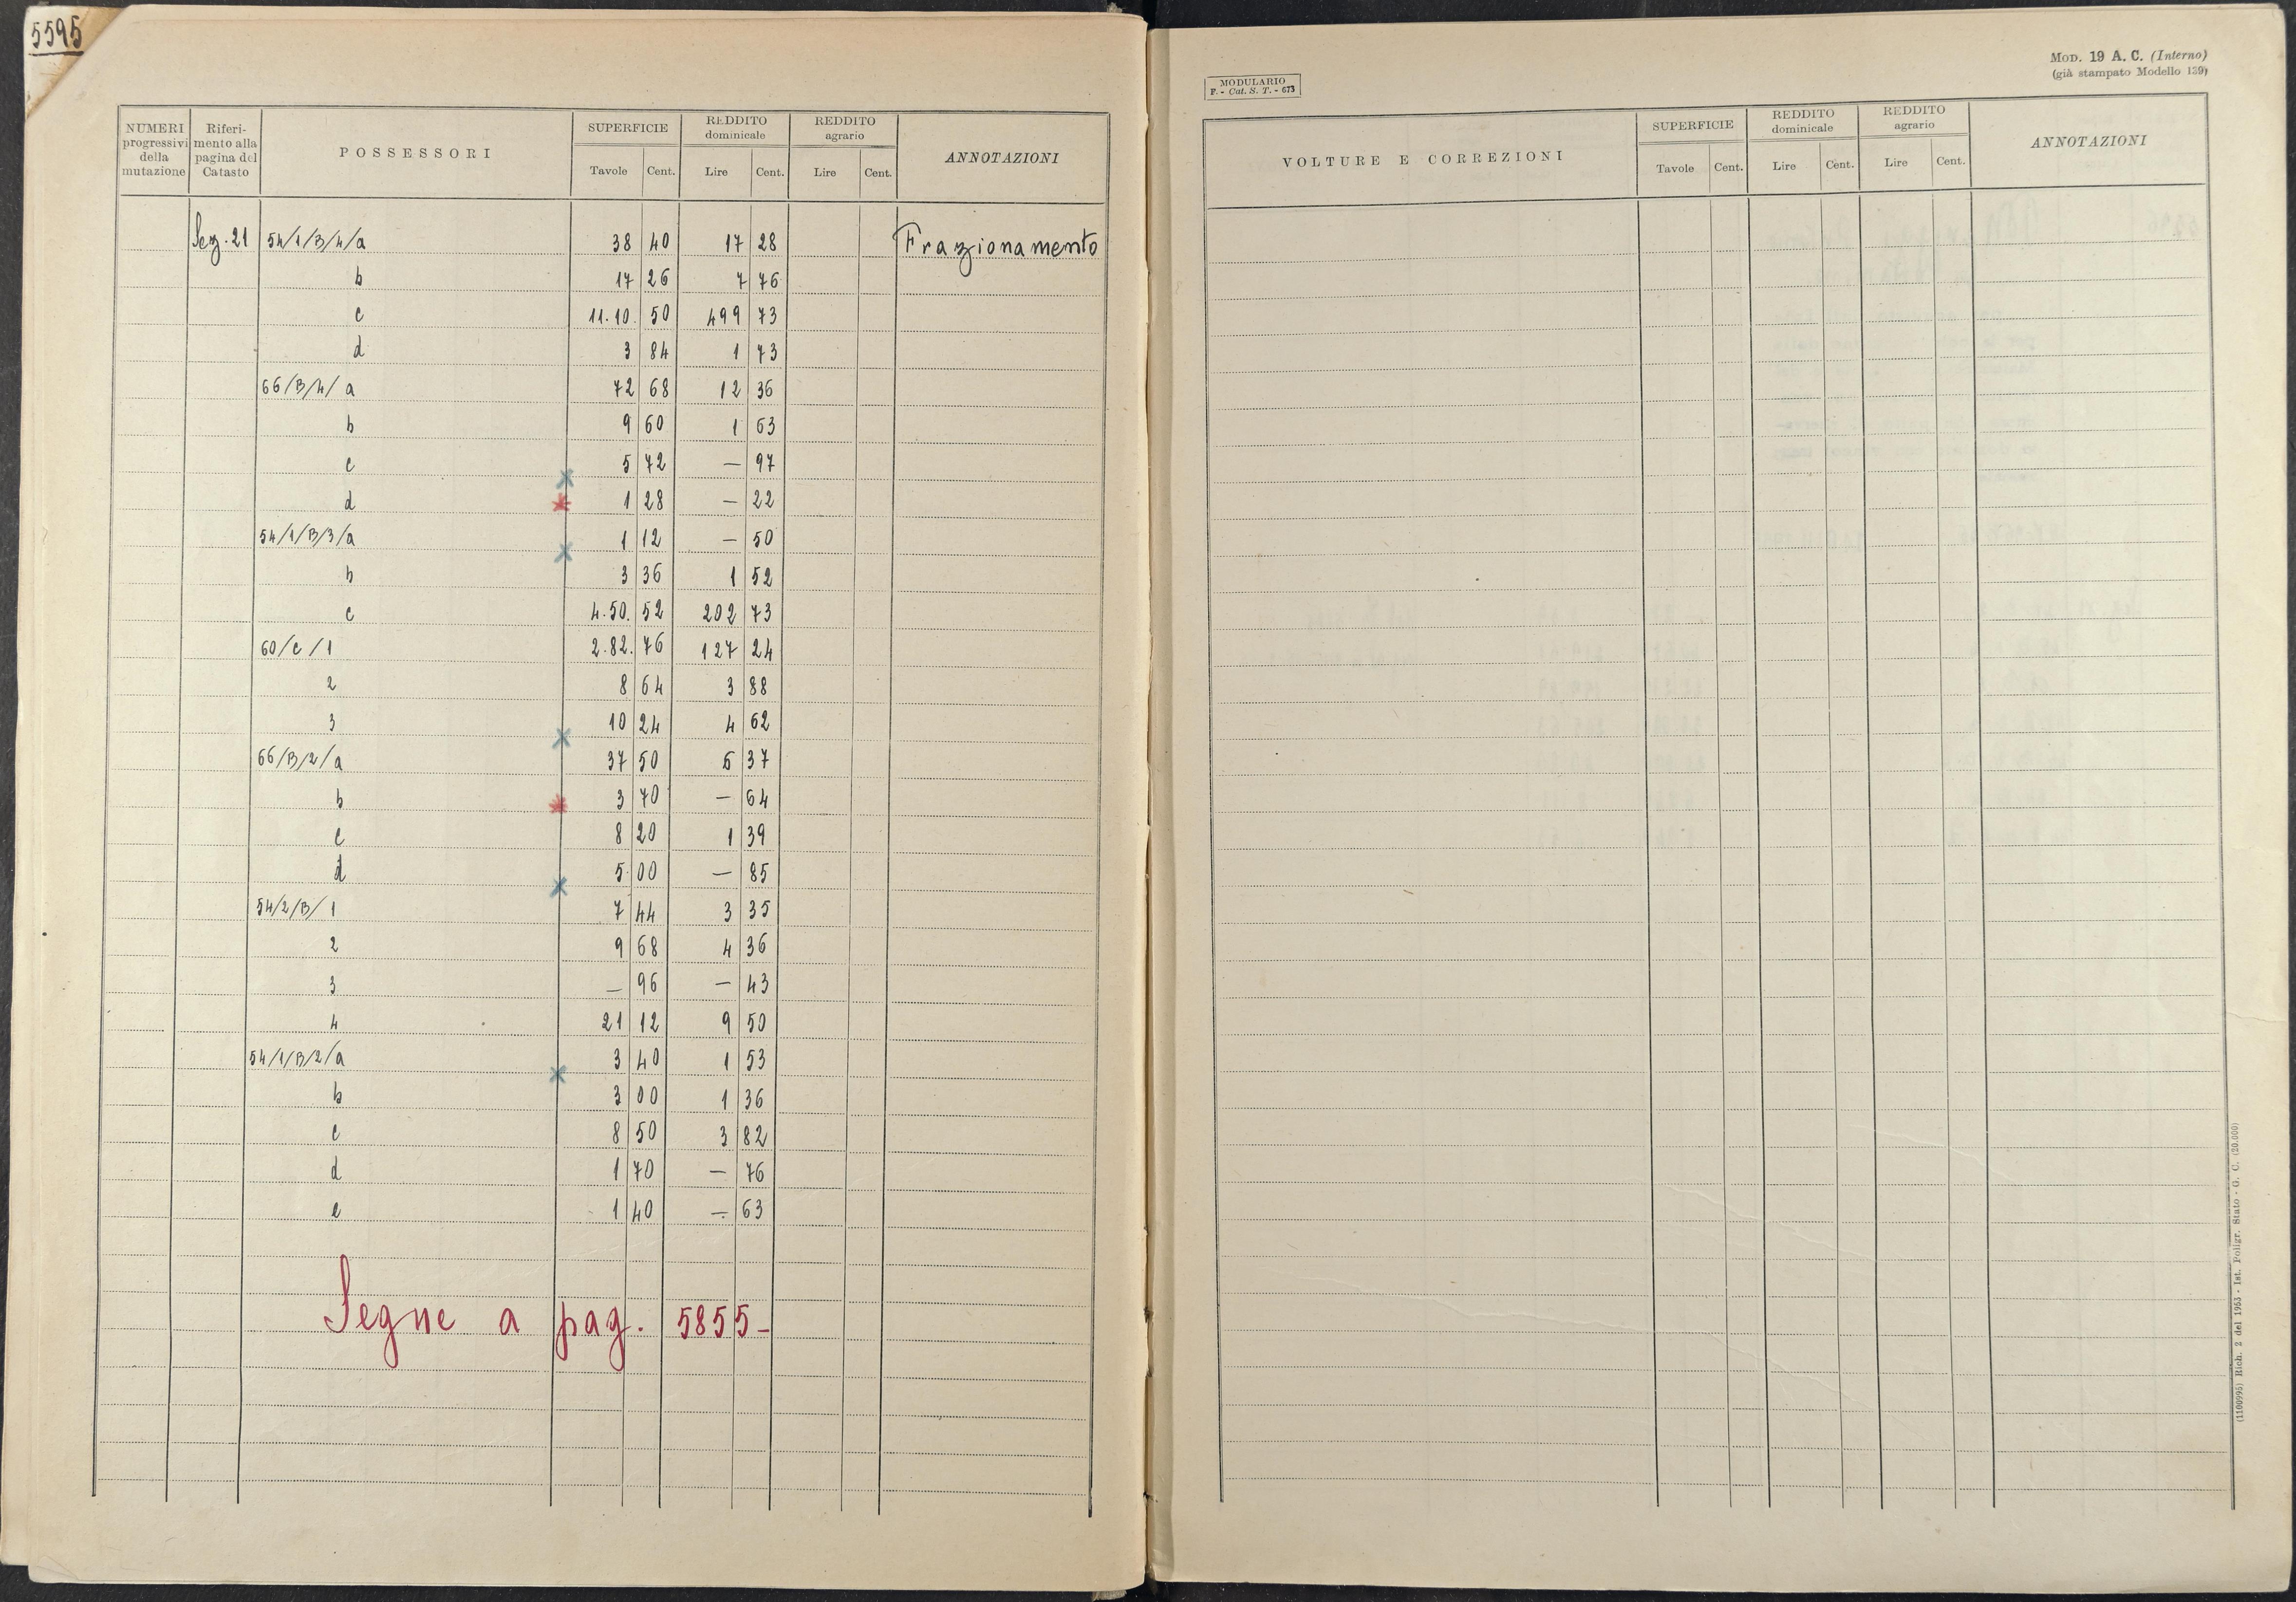 5595
NUMERI progressivi della mutazione
Riferimento alla pagina del Catasto
POSSESSORI
SUPERFICIE
Tavole Cent.
REDDITO dominicale
Lire Cent.
REDDITO agrario
Lire Cent.
ANNOTAZIONI
Sez. 21 54/1/B/4/a 38 40 17 28 Frazionamento
b 17 26 7 76
c 11.10. 50 499 73
d 3 84 1 73
66/B/4/a 72 68 12 36
b 9 60 1 63
c 5 72 — 97
d 1 28 — 22
54/1/B/3/a 1 12 — 50
b 3 36 1 52
c 4.50. 52 202 73
60/c/1 2.82. 76 127 24
2 8 64 3 88
3 10 24 4 62
66/B/2/a 37 50 6 37
b 3 70 — 64
c 8 20 1 39
d 5 00 — 85
54/2/B/1 7 44 3 35
2 9 68 4 36
3 — 96 — 43
4 21 12 9 50
54/1/B/2/a 3 40 1 53
b 3 00 1 36
c 8 50 3 82
d 1 70 — 76
e 1 40 — 63
Segue a pag. 5855-
MODULARIO
F. - Cat. S. T. - 673
MOD. 19 A. C. (Interno)
(già stampato Modello 139)
VOLTURE E CORREZIONI
SUPERFICIE
Tavole Cent.
REDDITO dominicale
Lire Cent.
REDDITO agrario
Lire Cent.
ANNOTAZIONI
(1100995) Rich. 2 del 1953 - Ist. Poligr. Stato - G. C. (20.000)